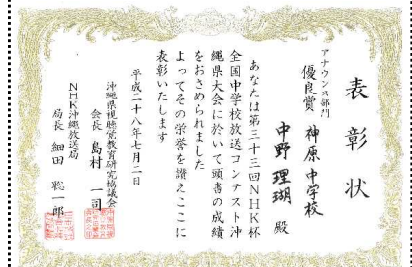 表彰状
アナウンス部門
優良賞 神原中学校
中野理瑚 殿
あなたは第三十三回NHK杯
全国中学校放送コンテスト沖
縄県大会に於いて頭書の成績
をおさめられました
よってその栄誉を讃えここに
表彰いたします
平成二十八年七月二日
沖縄県視聴覚教育研究協議会
会長 島村一司
NHK沖縄放送局
局長 細田聡一郎